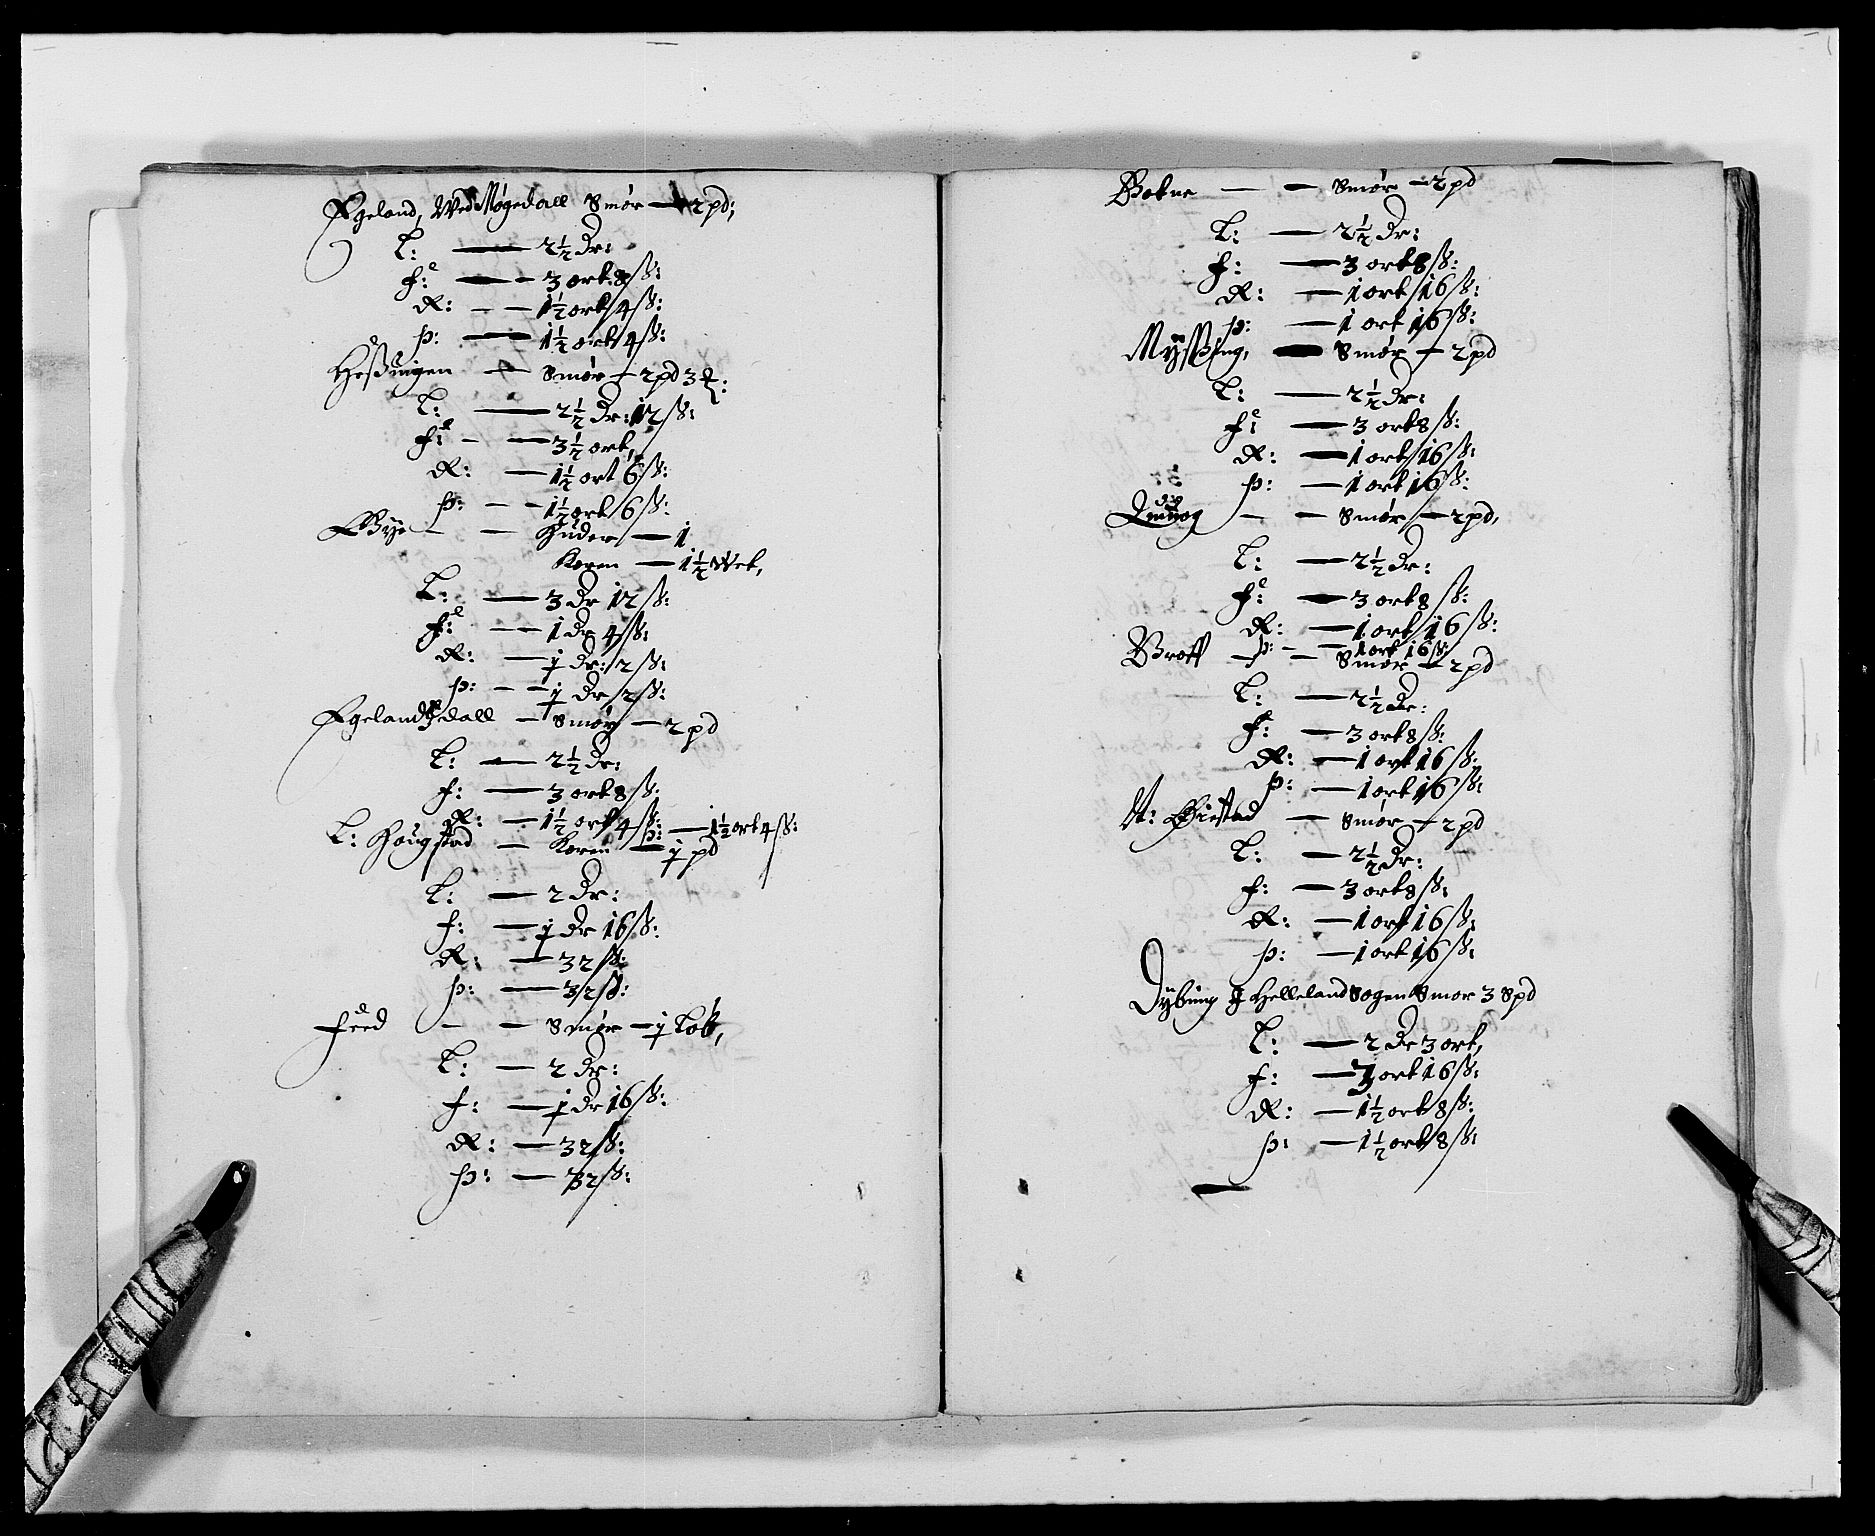 Egeland, Wed Møgedall Smør — 2 pd;
L: — 2½ dr:
F: — 3 ort 8 ß:
R: — 1½ ort 4 ß:
P: — 1½ ort 4 ß:
Heßingen — Smør — 2 pd 3
L: — 2½ dr: 12 ß:
F: — 3½ ort,
R: — 1½ ort 6 ß:
P: — 1½ ort 6 ß:
Bye — Huder — 1
Koren — 1½ Wet,
L: — 3 dr 12 ß:
F: — 1 dr 4 ß:
R: — ½ dr: 2 ß:
P: — ½ dr, 2 ß:
Egelandsdall — Smør — 2 pd
L: — 2½ dr:
F: — 3 ort 8 ß:
R: — 1½ ort 4 ß: P: — 1½ ort 4 ß:
L: Hougstad — Koren — ½ pd
L: — 2 dr:
F: — ½ dr 16 ß:
R: — 32 ß:
P: — 32 ß:
Feed — Smør — ½ Løb,
L: — 2 dr:
F: — ½ dr 16 ß:
R: — 32 ß:
P: — 32 ß:
Smør — 2 pd
L: — 2½ dr:
F: — 3 ort 8 ß:
R: — 1 ort 16 ß:
P: — 1 ort 16 ß:
Myßing, — Smør — 2 pd
L: — 2½ dr:
F: — 3 ort 8 ß:
R: — 1 ort 16 ß:
P: — 1 ort 16 ß:
Smør — 2 pd,
L: — 2½ dr:
F: — 3 ort 8 ß:
R: — 1 ort 16 ß:
P: — 1 ort 16 ß:
Smør — 2 pd
L: — 2½ dr:
F: — 3 ort 8 ß:
R: — 1 ort 16 ß:
P: — 1 ort 16 ß:
Øiestad — Smør — 2 pd
L: — 2½ dr:
F: — 3 ort 8 ß:
R: — 1 ort 16 ß:
P: — 1 ort 16 ß:
Dybing I Helleland Sogen Smør 3 Spd
L: — 2 dr 3 ort,
F: — 3 ort 16 ß:
R: — 1½ ort 8 ß:
P: — 1½ ort 8 ß: